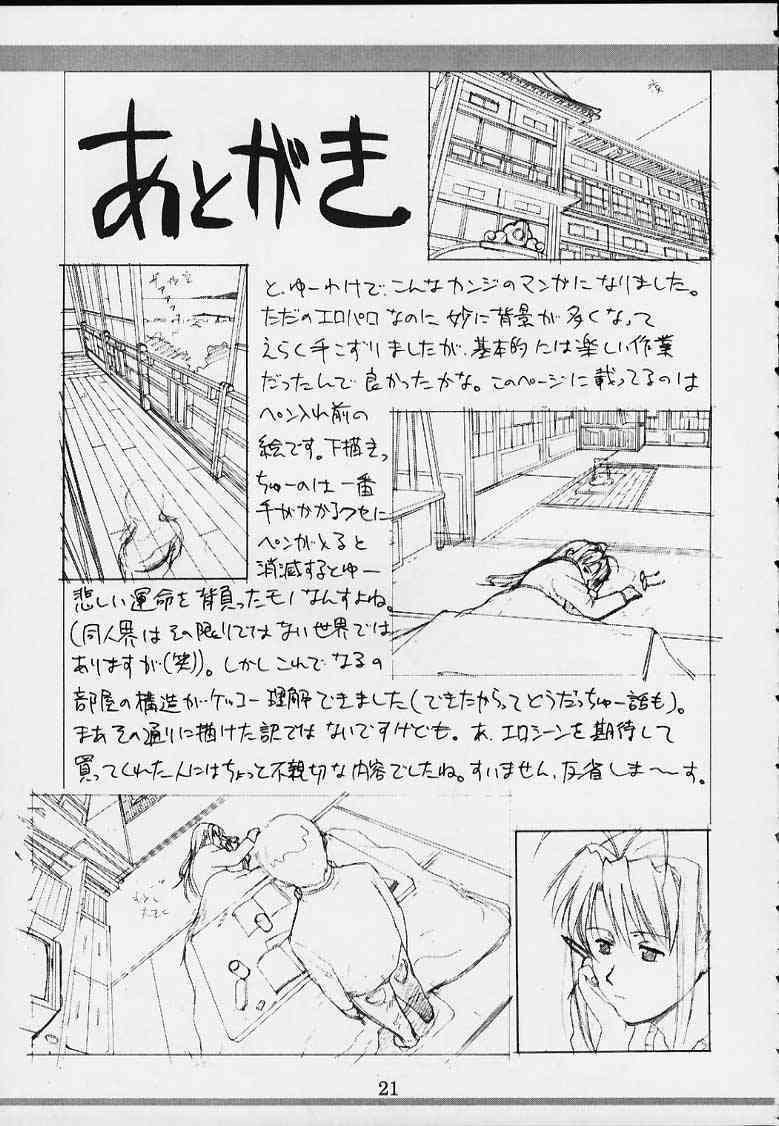 あとがき
夜
と、ゆーわけで、こんなカンジのマンガになりました。
ただのエロパロなのに妙に背景が多くなって
えらく手こずりましたが、基本的には楽しい作業
だったんで良かったかな。このページに載ってるのは
ペン入れ前の
絵です。下描きっ
ちゅーのは一番
手がかかるクセに
ペンが入ると
消滅するとゆー
悲しい運命を背負ったモノなんすよね。
(同人界はその限りではない世界では
ありますが(笑))。しかしこれでなるの
部屋の構造がケッコー理解できました(できたからってどうだっちゅー話も)。
まあその通りに描けた訳ではないですけども。あ、エロシーンを期待して
買ってくれた人にはちょっと不親切な内容でしたね。すいません、反省しま〜〜す。
21